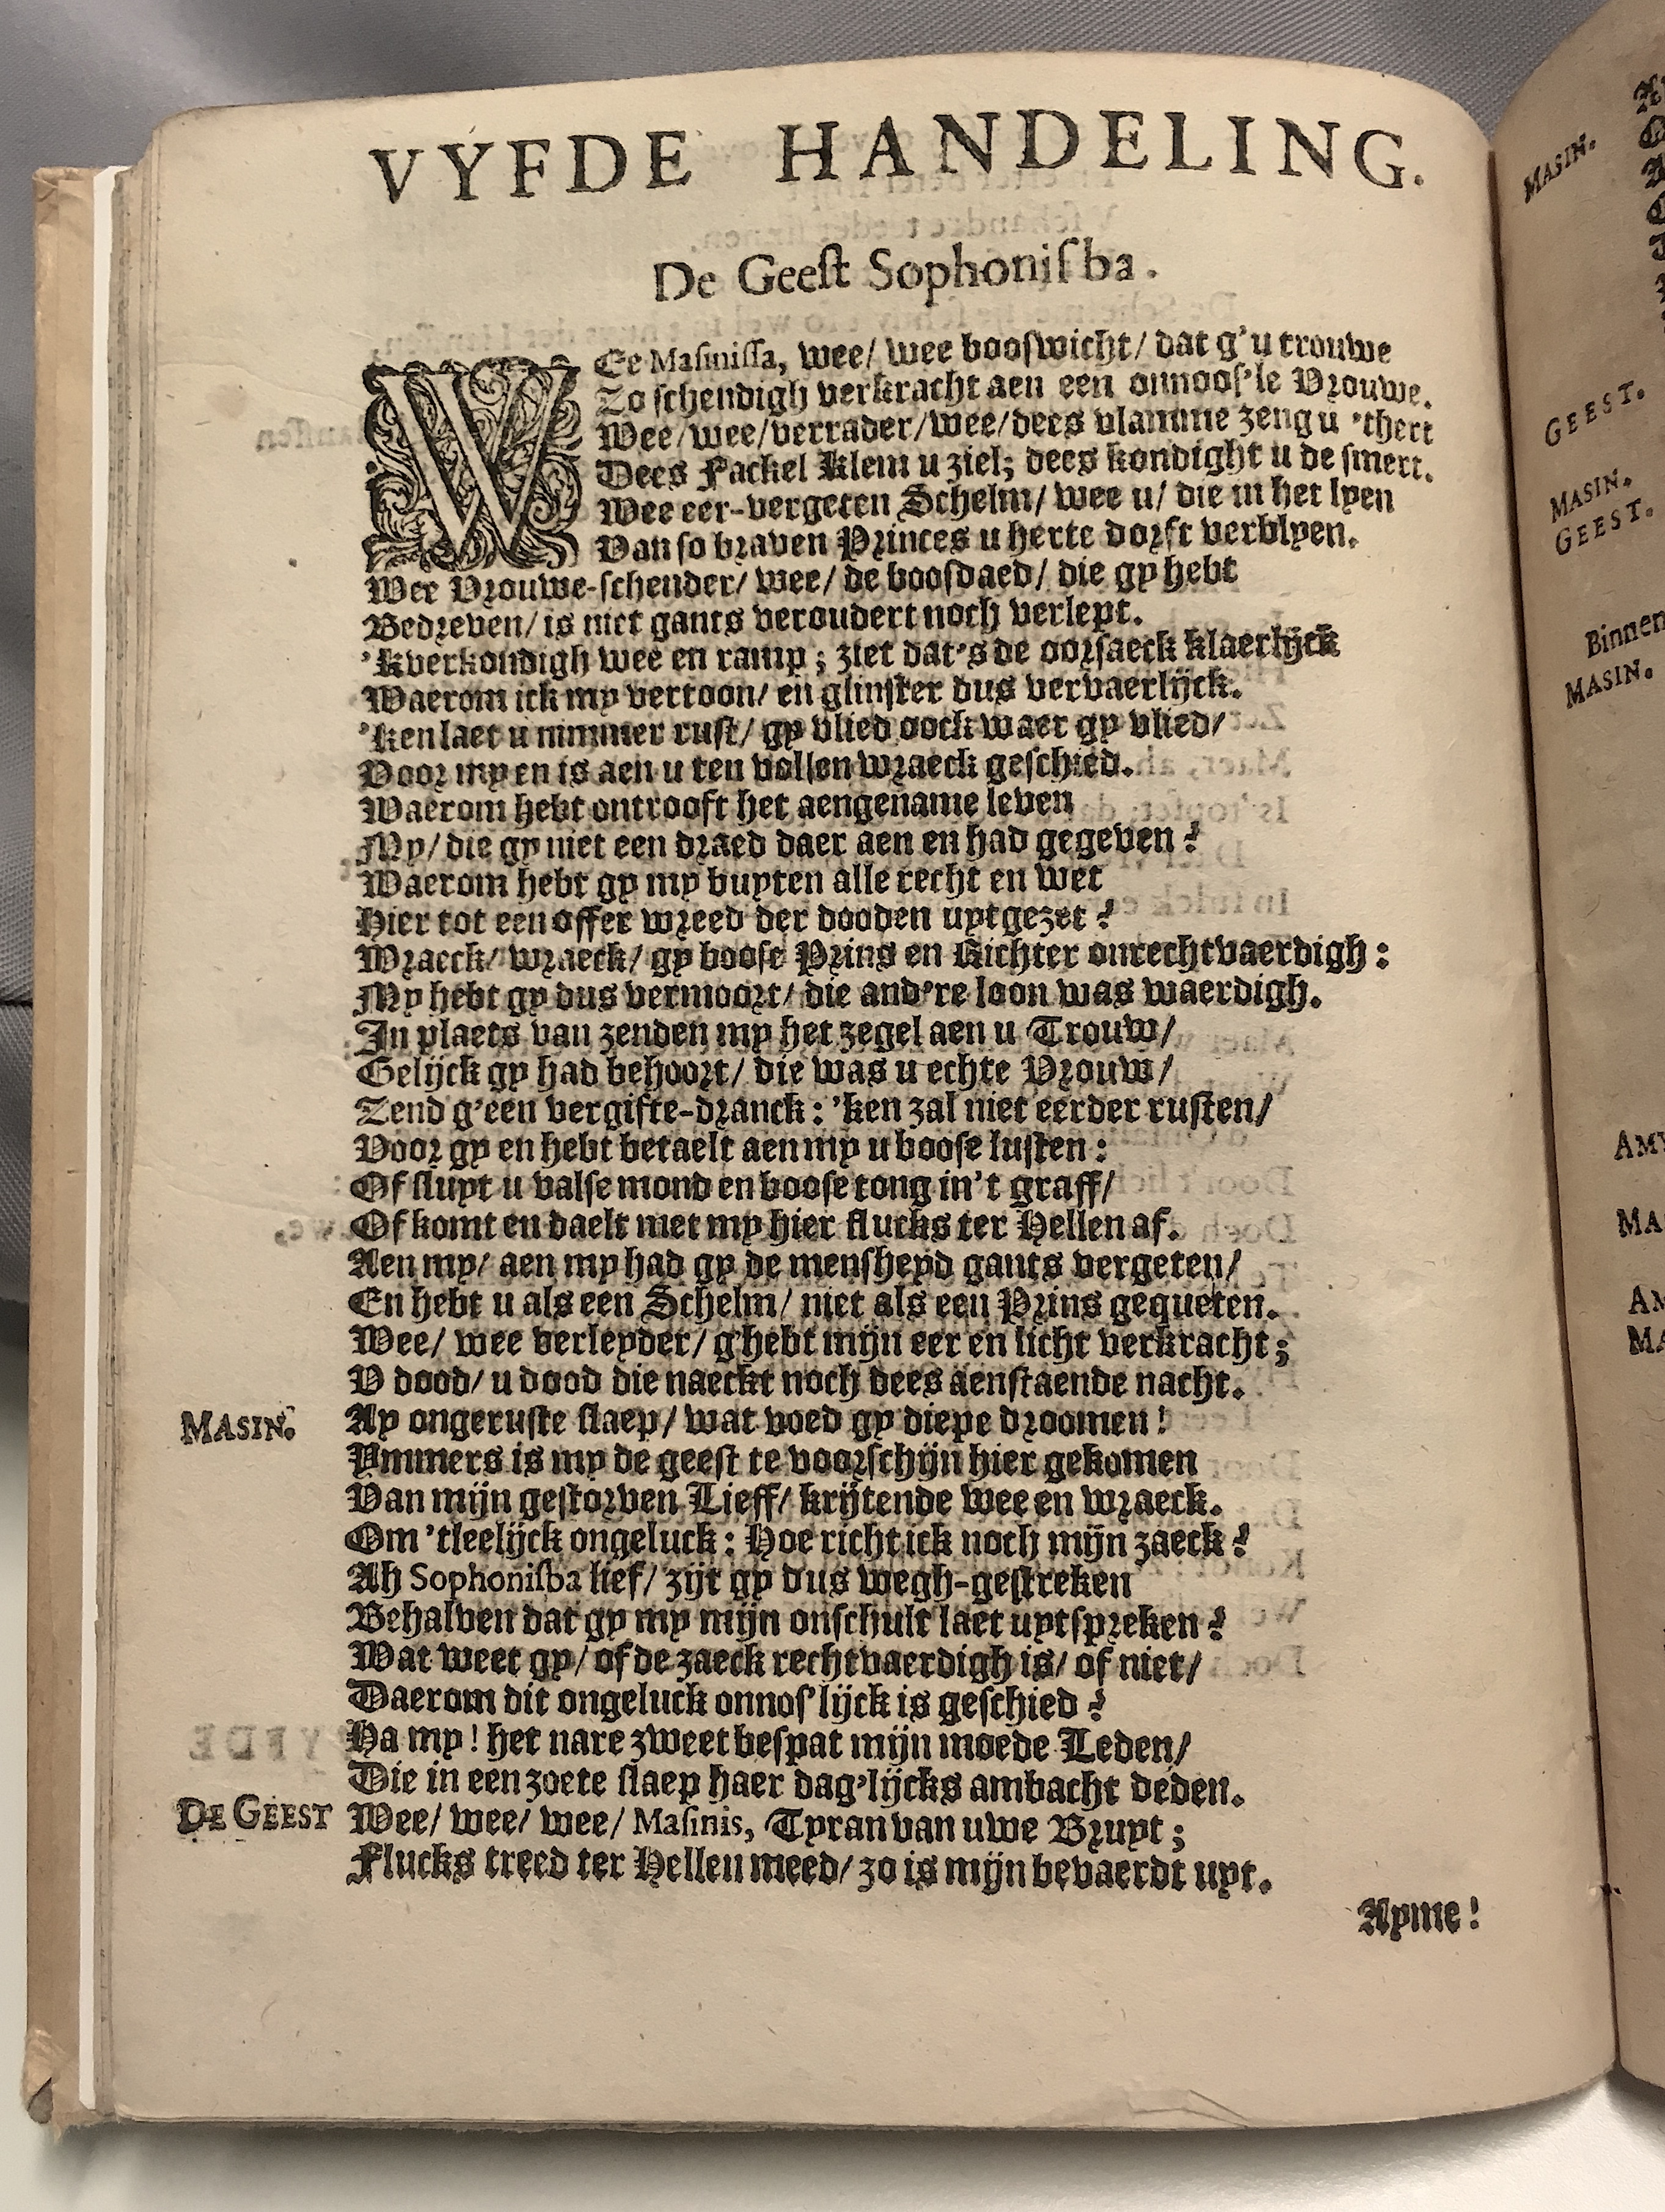 VYFDE HANDELING.
De Geeſt Sophoniſba.
WEe Maſiniſſa, wee/ wee booſwicht/ dat g'u trouwe
Zo ſchendigh verkracht aen een onnooſ'le Vrouwe.
Wee/wee/verrader/wee/dees vlamme zeng u 'thert
Dees Fackel klem u ziel; dees kondight u de ſmert.
Wee eer-vergeten Schelm/ wee u/ die in het lyen
Van ſo braven Princes u herte dorſt verblyen.
Wee Vrouwe-ſchender/ wee/ de booſdaed/ die gy hebt
Bedreven/ is niet gants veroudert noch verlept.
'kverkondigh wee en ramp; ziet dat's de oorſaeck klaerlijck
Waerom ick my vertoon/ en glinſter dus vervaerlijck.
'ken laet u nimmer ruſt/ gy vlied oock waer gy vlied/
Voor my en is aen u ten vollen wraeck geſchied.
Waerom hebt ontrooft het aengename leven
My/ die gy niet een draed daer aen en had gegeven?
Waerom hebt gy my buyten alle recht en wet
Hier tot een offer wreed der dooden uytgezet?
Wraeck/ wraeck/ gy booſe Prins en Richter onrechtvaerdigh:
My hebt gy dus vermoort/ die and're loon was waerdigh.
In plaets van zenden my het zegel aen u Trouw/
Gelijck gy had behoort/ die was u echte Vrouw/
Zend g'een vergifte-dranck: 'ken zal niet eerder ruſten/
Voor gy en hebt betaelt aen my u booſe luſten:
Of ſluyt u valſe mond en booſe tong in't graff/
Of komt en daelt met my hier flucks ter Hellen af.
Aen my/ aen my had gy de menſheyd gants vergeten/
En hebt u als een Schelm/ niet als een Prins gequeten.
Wee/ wee verleyder/ g'hebt mijn eer en licht verkracht;
V dood/ u dood die naeckt noch dees aenſtaende nacht.
MASIN. Ay ongeruſte ſlaep/ wat voed gy diepe droomen!
Ymmers is my de geeſt te voorſchijn hier gekomen
Van mijn geſtorven Lieff/ krijtende wee en wraeck.
Om 'tleelijck ongeluck: Hoe richt ick noch mijn zaeck?
Ah Sophoniſba lief/ zijt gy dus wegh-geſtreken
Behalven dat gy my mijn onſchult laet uytſpreken?
Wat weet gy/ of de zaeck rechtvaerdigh is/ of niet/
Daerom dit ongeluck onnoſ'lijck is geſchied?
Ha my! het nare zweet beſpat mijn moede Leden/
Die in een zoete ſlaep haer dag'lijcks ambacht deden.
DE GEEST Wee/ wee/ wee/ Maſinis, Tyran van uwe Bruyt;
Flucks treed ter Hellen meed/ zo is mijn bevaerdt uyt.
Ayme!
MASIN.
GEEST.
MASIN.
GEEST.
Binnen
MASIN.